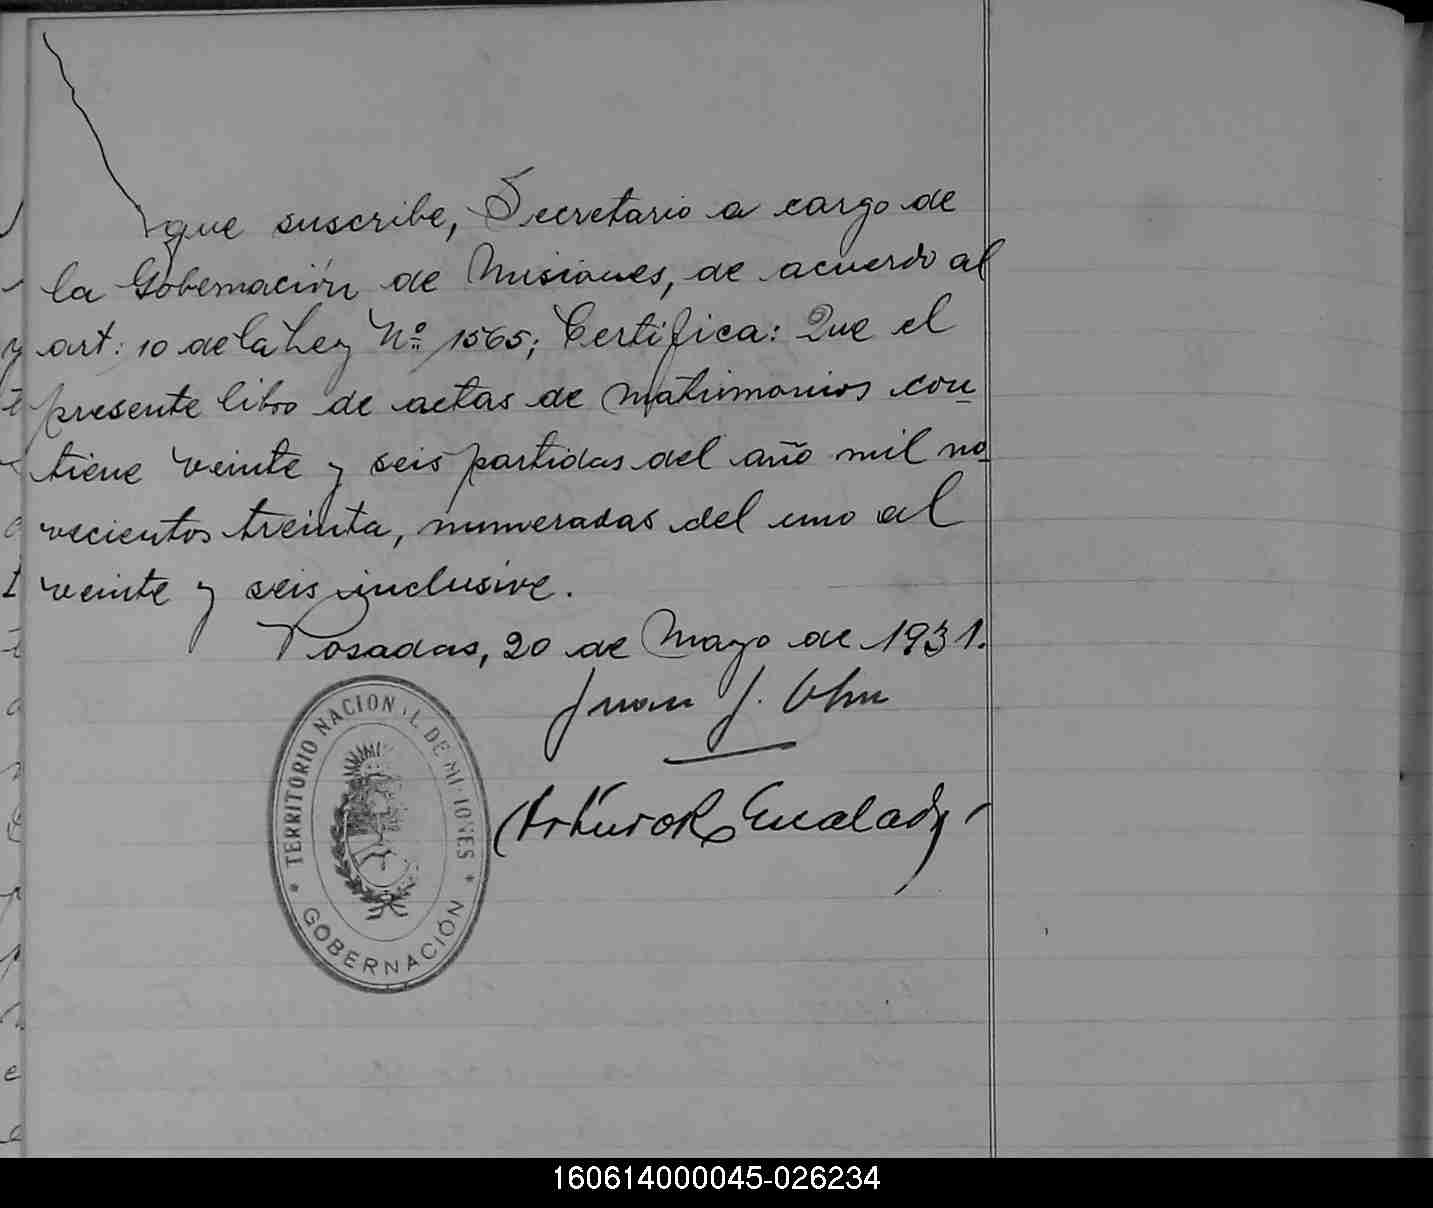 que suscribe, Secretario a cargo de
la Gobernación de Misiones, de acuerdo al
art: 10 de la Ley Nº 1565; Certifica: Que el
presente libro de actas de matrimonios con
tiene veinte y seis partidas del año mil no
vecientos treinta, numeradas del uno al
veinte y seis inclusive.
Posadas, 20 de Mayo de 1931.
Juan J.
Arturo R.
TERRITORIO NACIONAL DE MISIONES
GOBERNACIÓN
160614000045-026234